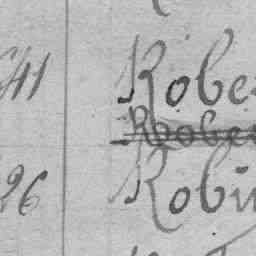 41 Robe
Robe
26 Robi